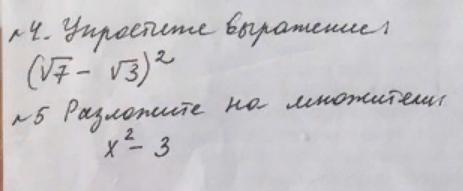 №4. Упростите выражение:
(√7 - √3)²
№5 Разложите на множители:
x² - 3